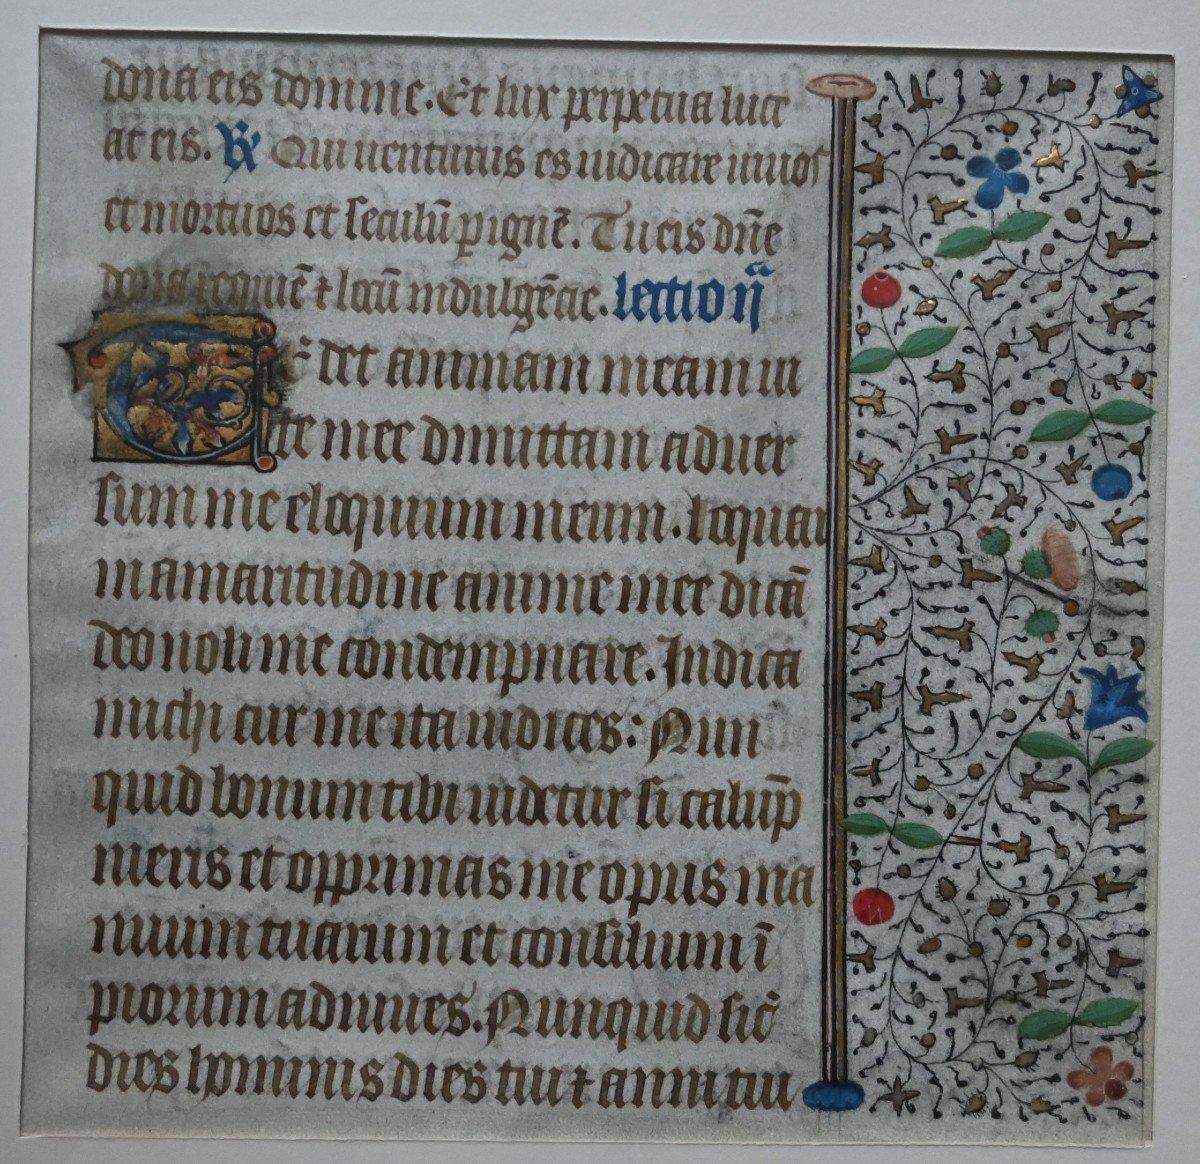 dona eis domine. Et lux perpetua luce
at eis. R Qui venturus es iudicare vivos
et mortuos et seculū p ignē. Tu eis dn̄e
dona requiē ⁊ locū indulgēcie. lectio ijͣ
T det animam meam vi
te mee dimittam adver
sum me eloquium meum. loquar
in amaritudine anime mee dicā
deo noli me condempnare. Indica
michi cur me ita iudices: Nun
quid bonum tibi videtur si calūp
meris et opprimas me opus ma
nuum tuarum et consilium ī
piorum adiuves. Nunquid sic̄
dies hominis dies tui ⁊ anni tui